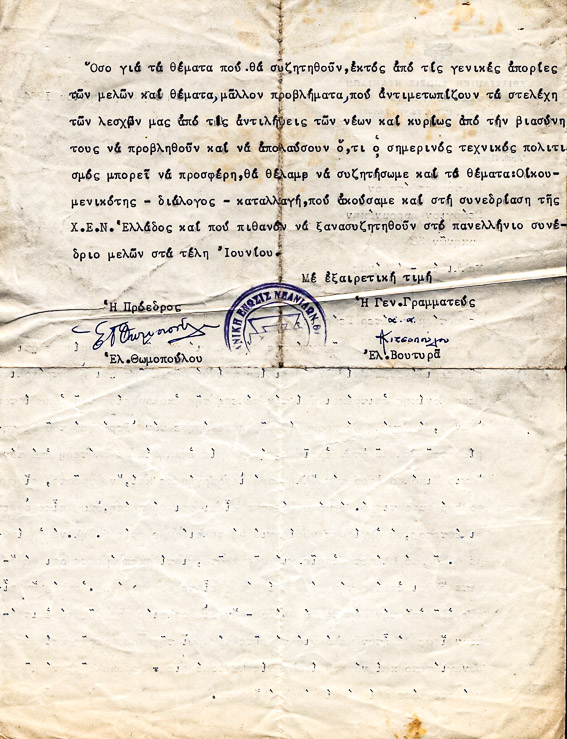 Ὅσο γιά τά θέματα πού θά συζητηθοῦν,ἐκτός ἀπό τίς γενικές ἀπορίες
τῶν μελῶν καί θέματα,μᾶλλον προβλήματα,πού ἀντιμετωπίζουν τά στελέχη
τῶν λεσχῶν μας ἀπό τίς ἀντιλήψεις τῶν νέων καί κυρίως ἀπό τήν βιασύνη
τους νά προβληθοῦν καί νά ἀπολαύσουν ὅ,τι ὁ σημερινός τεχνικός πολιτι
σμός μπορεῖ νά προσφέρῃ,θά θέλαμε νά συζητήσωμε καί τά θέματα:Οἰκου-
μενικότης - διάλογος - καταλλαγή,πού ἀκούσαμε καί στή συνεδρίαση τῆς
Χ.Ε.Ν.Ἑλλάδος καί πού πιθανόν νά ξανασυζητηθοῦν στό πανελλήνιο συνέ-
δριο μελῶν στά τέλη Ἰουνίου.
Μέ ἐξαιρετική τιμή
Ἡ Πρόεδρος
Ἡ Γεν.Γραμματεύς
α.α.
ΝΙΚΗ ΕΝΩΣΙΣ ΝΕΑΝΙΔΩΝ
Ἐλ.Θωμοπούλου
Ἐλ.Βουτυρᾶ